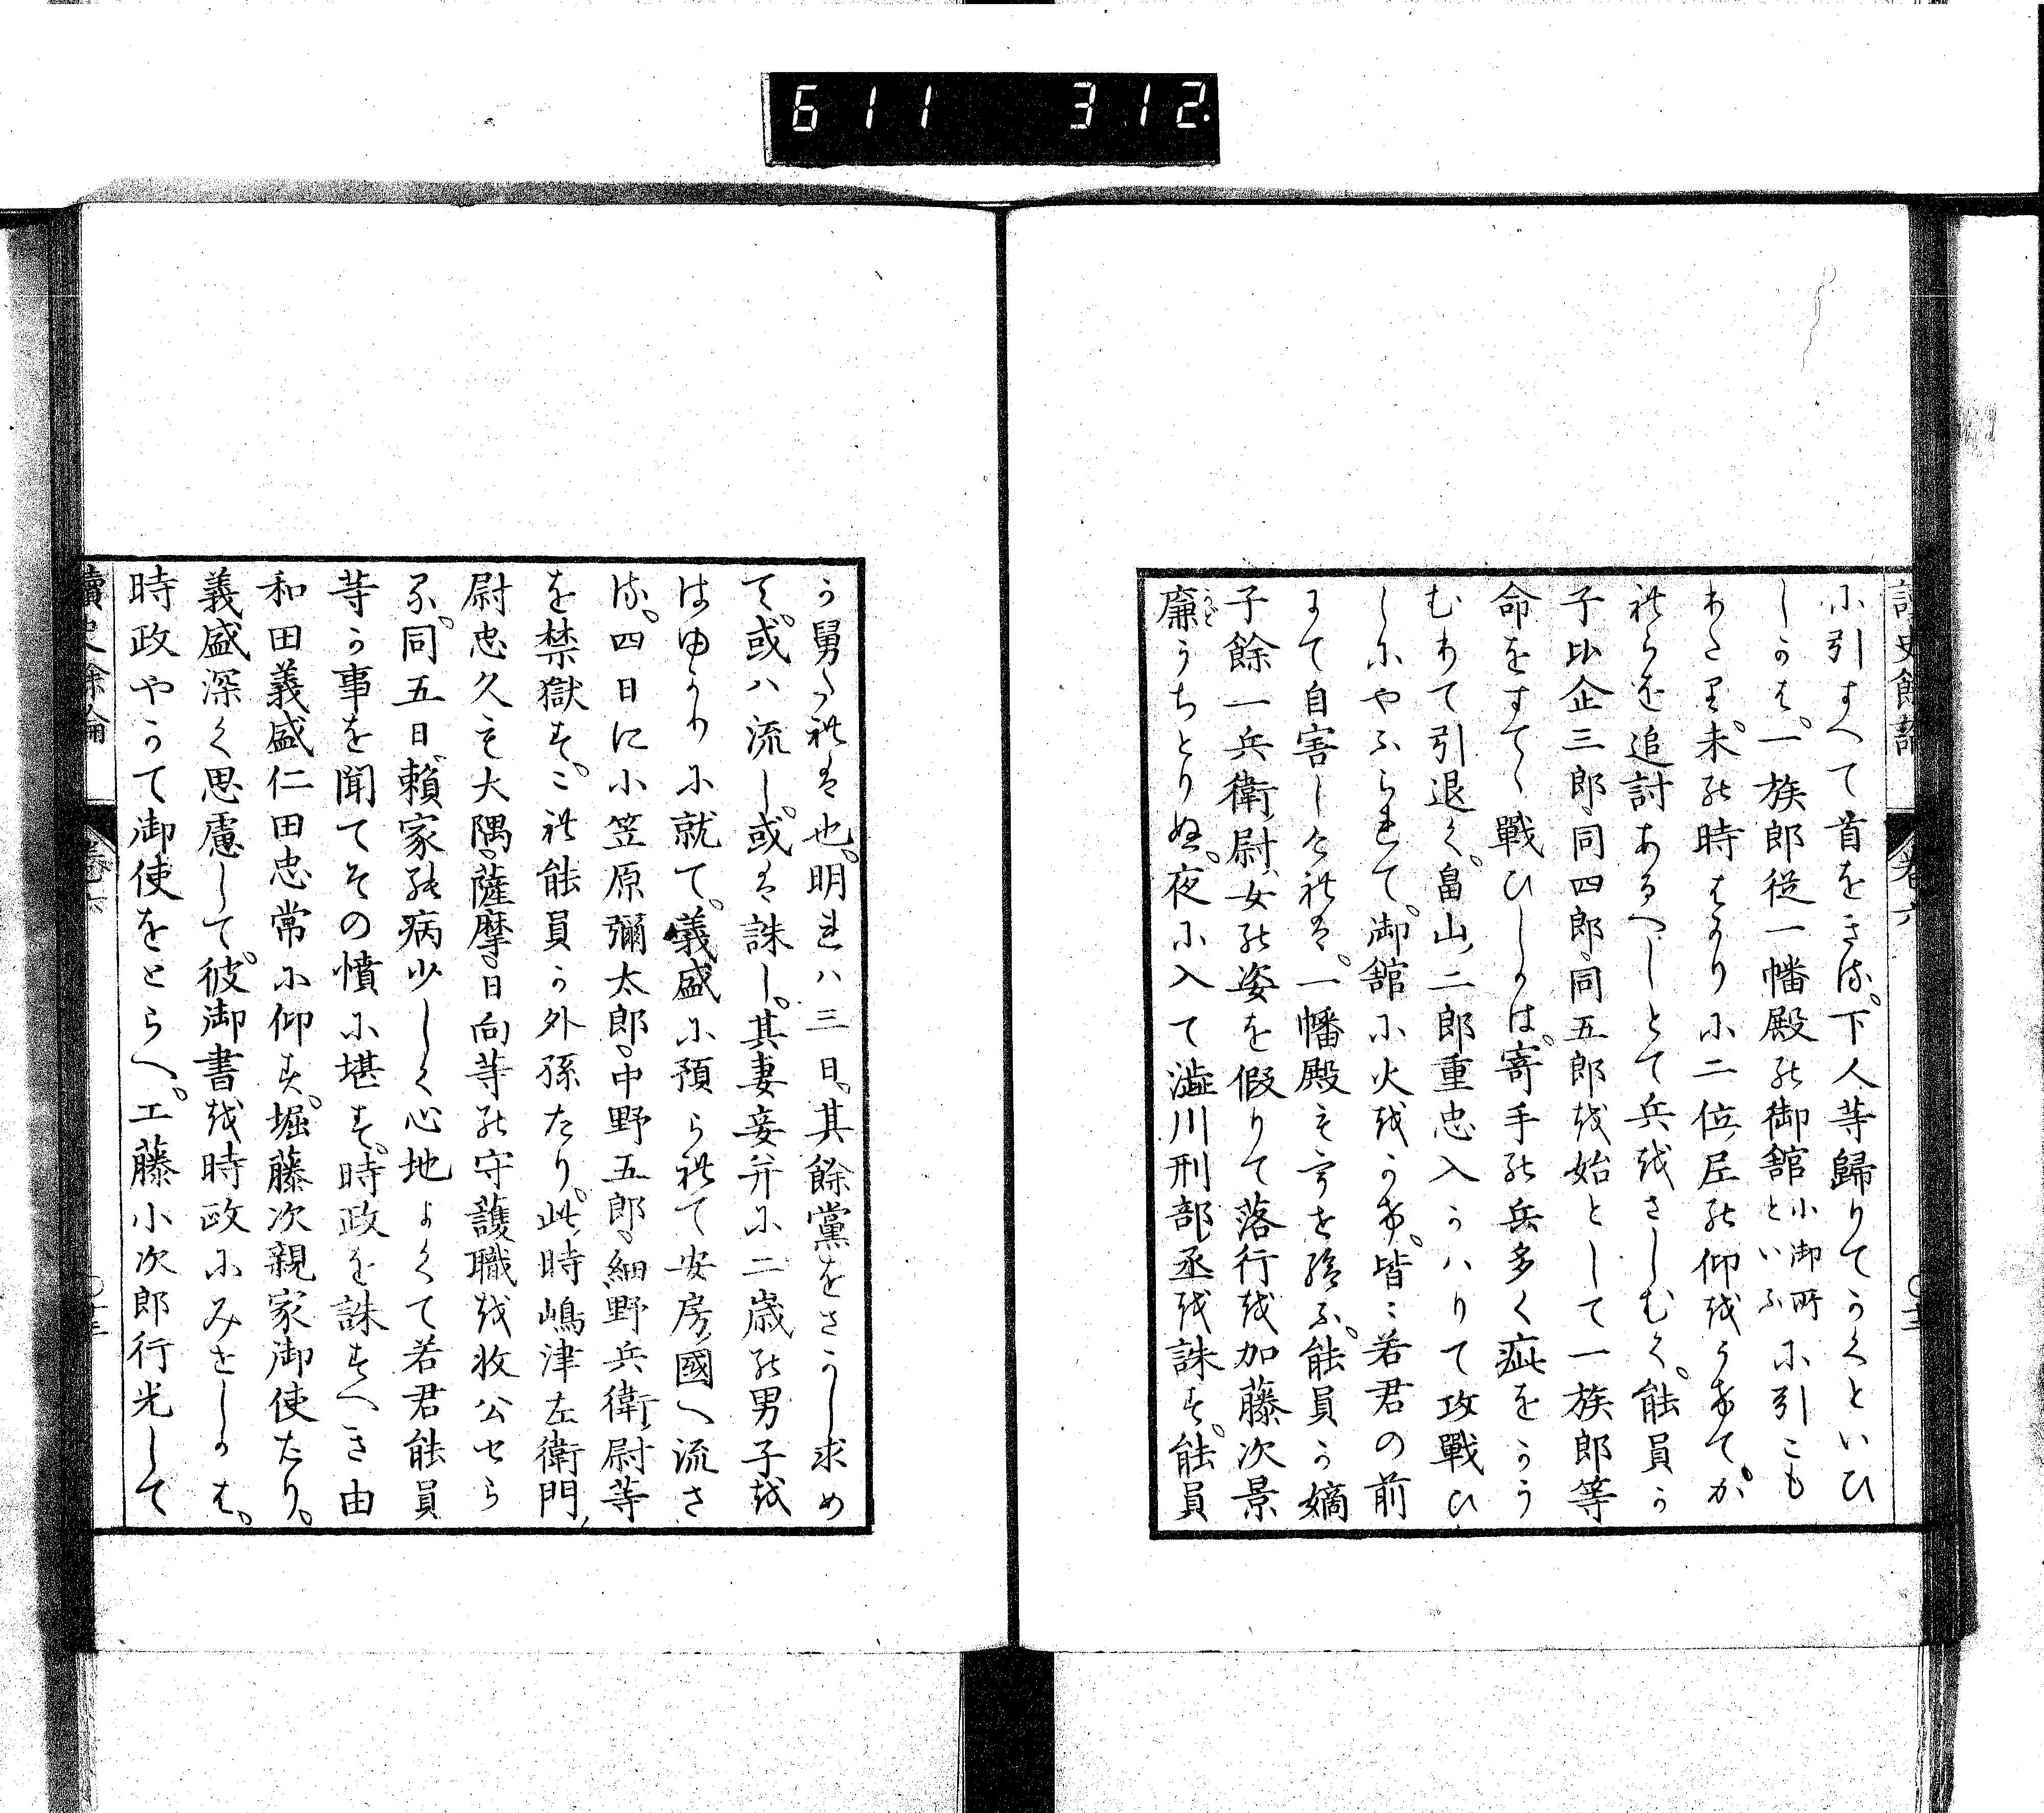 611 312.
讀史餘論 卷六 〇十二
に引すへて首をきる。下人等歸りてかくといひ
しかは。一族郎従一幡殿の御舘小御所といふに引こも
わたり。未の時はかりに二位尼の仰をうけて。か
れらを追討あるへしとて兵をさしむく。能員か
子比企三郎。同四郎。同五郎を始として一族郎等
命をすてゝ戰ひしかは。寄手の兵多く疵をかう
むりて引退く。畠山二郎重忠入かハりて攻戰ひ
しにやふられて。御舘に火をかけ。皆〻若君の前
にて自害しけれは。一幡殿も害を給ふ。能員か嫡
子餘一兵衛尉。女の姿を假りて落行を加藤次景
廉うちとりぬ。夜に入て澁川刑部丞を誅す。能員
か舅たれは也。明れハ三日。其餘黨をさかし求め
て。或ハ流し。或は誅し。其妻妾并に二歳の男子を
はゆかりに就て。義盛に預られて安房國へ流さ
る。四日に小笠原彌太郎。中野五郎。細野兵衛尉等
を禁獄す。これ能員か外孫たり。此時嶋津左衛門
尉忠久も大隅。薩摩。日向等の守護職を收公せら
る。同五日。頼家の病少しく心地よくて若君能員
等か事を聞てその憤に堪す。時政を誅すへき由
和田義盛仁田忠常に仰す。堀藤次親家御使たり。
義盛深く思慮して。彼御書を時政にみせしかは。
時政やかて御使をとらへ。工藤小次郎行光して
讀史餘論 卷六 〇十三